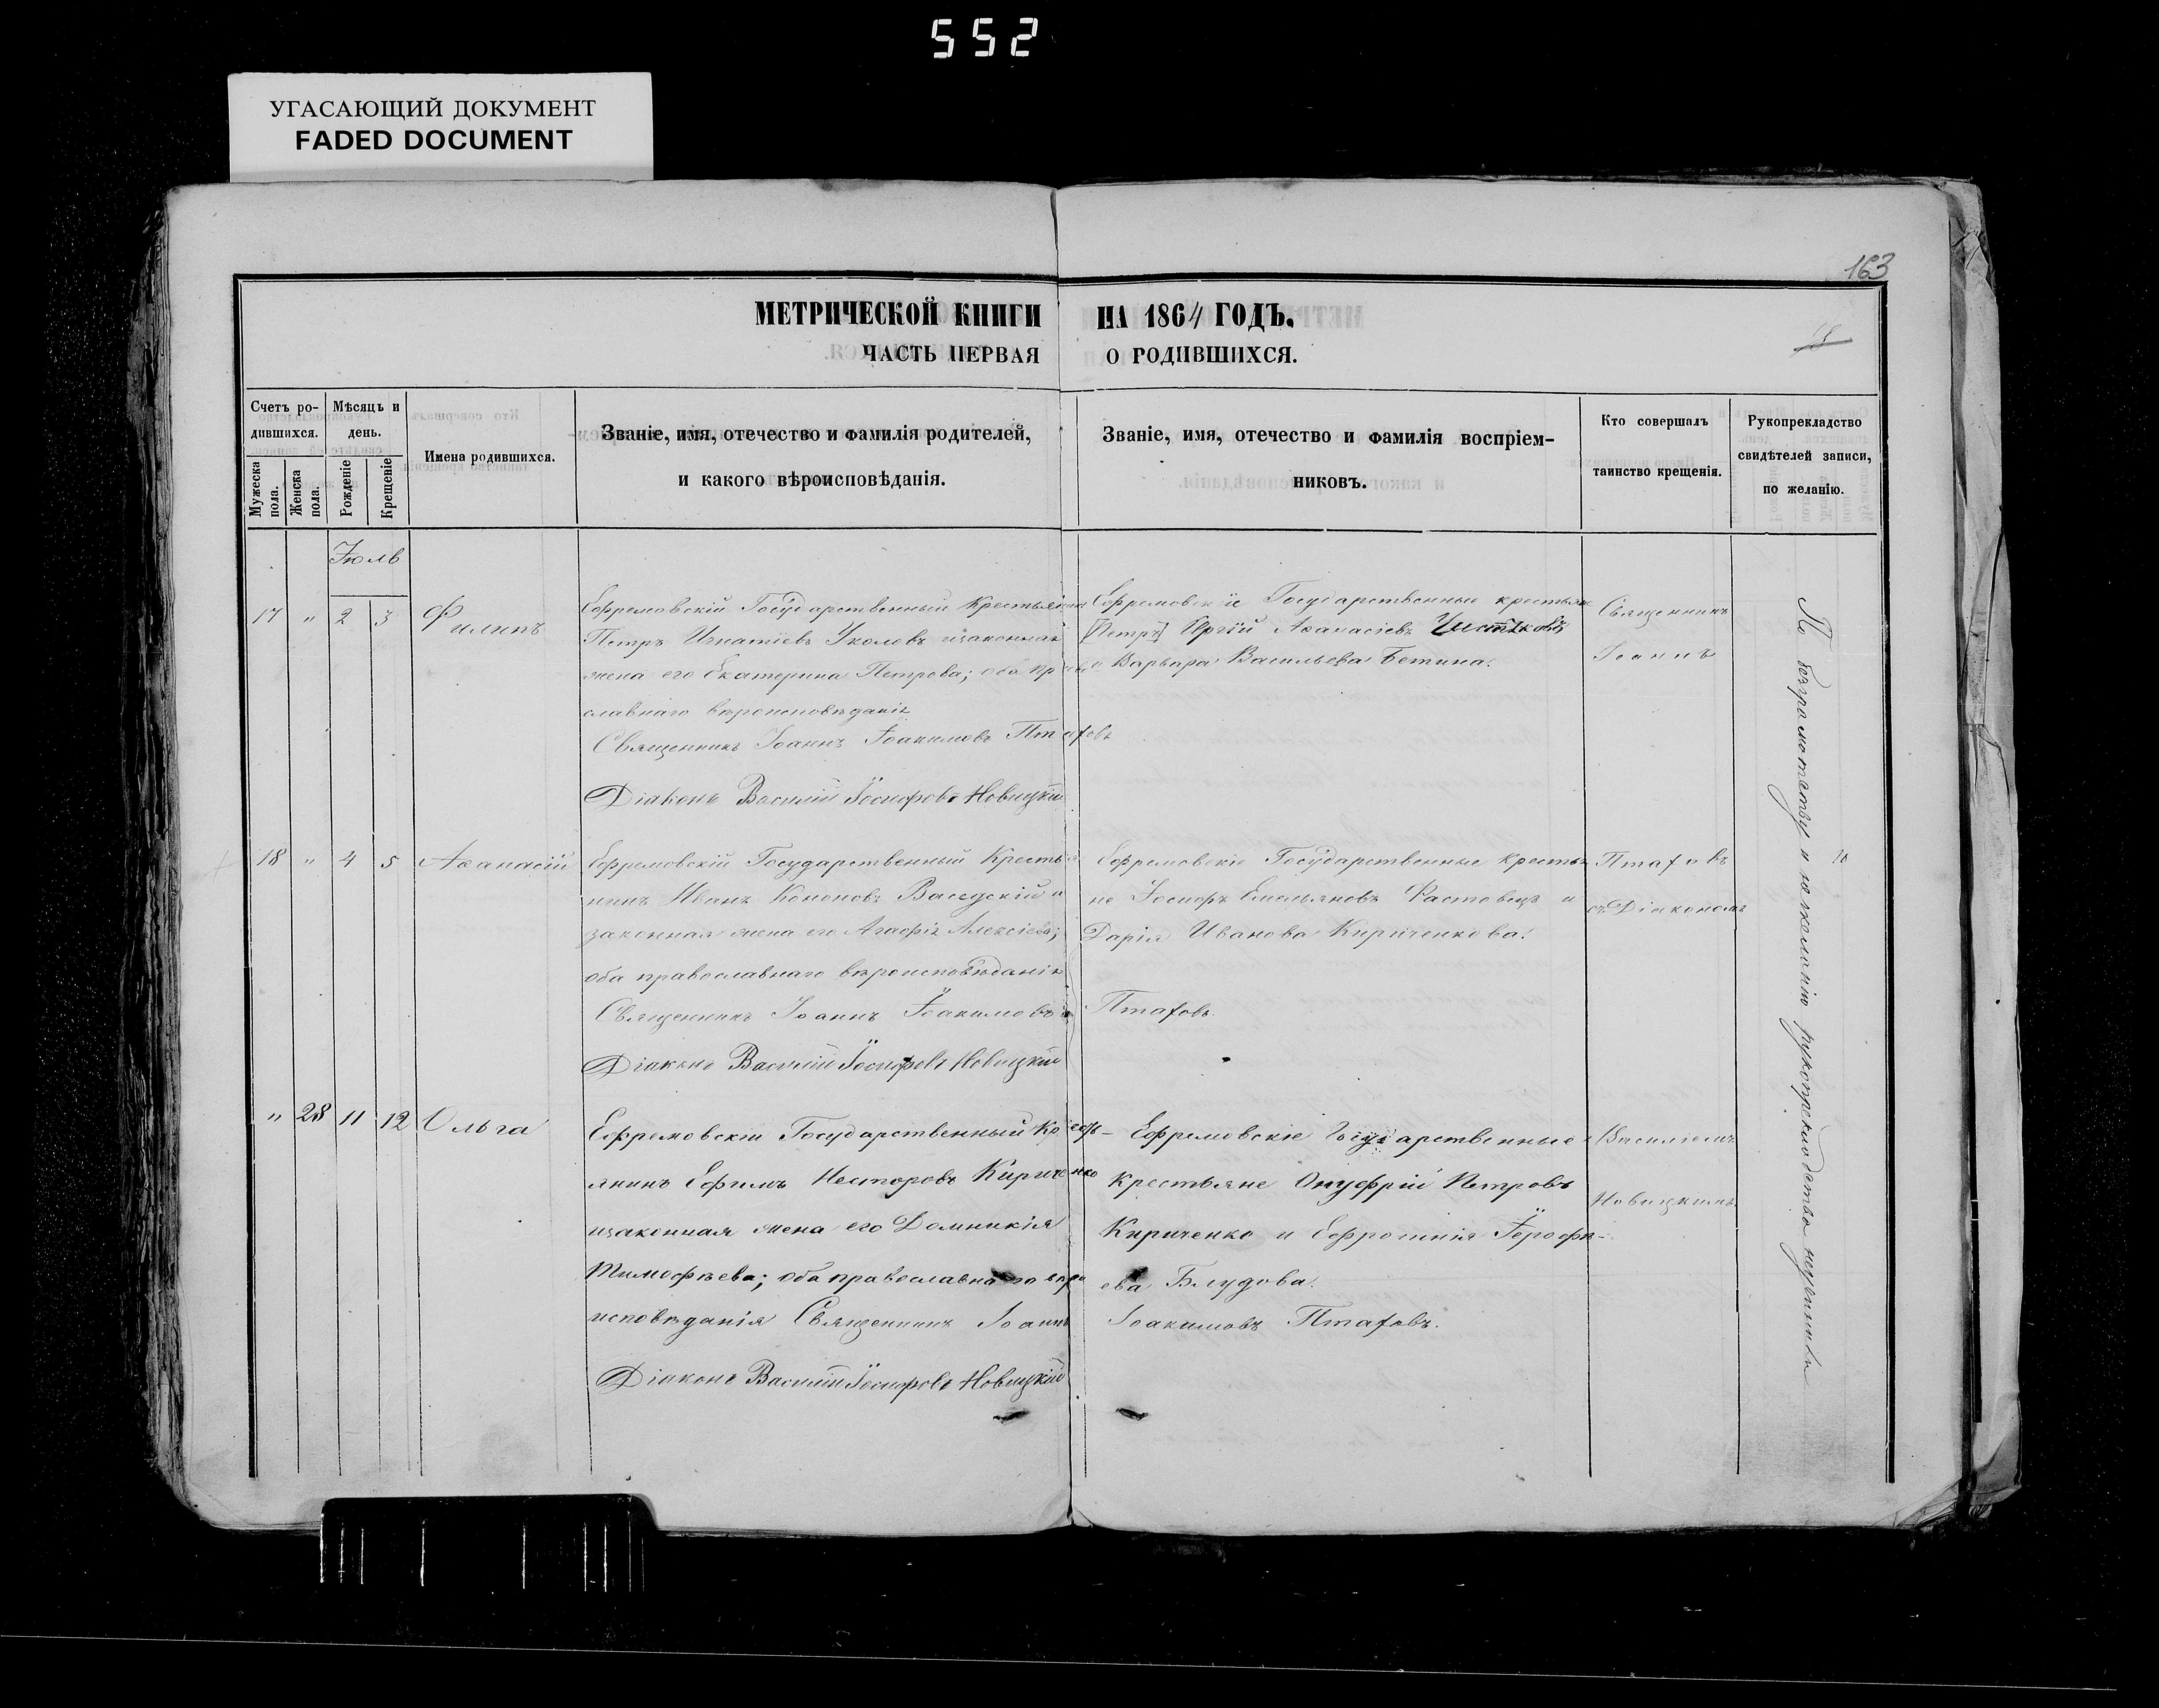 552
УГАСАЮЩИЙ ДОКУМЕНТ
FADED DOCUMENT
163
МЕТРИЧЕСКОЙ КНИГИ НА 1864 ГОДЪ.
ЧАСТЬ ПЕРВАЯ О РОДИВШИХСЯ.
Счетъ ро-
дившихся.
Мужеска пола.
Женска пола.
Мѣсяцъ и
день.
Рожденіе
Крещеніе
Имена родившихся.
Званіе, имя, отечество и фамилія родителей,
и какого вѣроисповѣданія.
Званіе, имя, отечество и фамилія воспріем-
никовъ.
Кто совершалъ
таинство крещенія.
Рукоприкладство
свидѣтелей записи,
по желанію.
Іюль
17 " 2 3 Филипъ
Ефремовскій Государственный Крестьянинъ
Петръ Игнатіевъ Уколовъ изаконная
жена его Екатерина Петрова; оба право
славнаго вѣроисповѣданія
Священникъ Іоаннъ Іоакимовъ Птаховъ
Діаконъ Василій Іосифовъ Новицкій
Ефремовскіе Государственныи крестьян
[Петръ] Афанасіевъ
и Варвара Васильева Бетина.
Священникъ
Іоаннъ
18 " 4 5 Афанасій
Ефремовскій Государственный Крестья
нинъ Иванъ Кононовъ и
законная жена его Агафія Алексіева;
оба православнаго вѣроисповѣданія
Священникъ Іоаннъ Іоакимовъ Птаховъ.
Діаконъ Василій Іосифовъ Новицкій
Ефремовскіе Государственные крестья
не Іосифъ Емельяновъ Фастовецъ и
Дарія Иванова Кириченкова.
Птаховъ
съ Діакономъ
" 28 11 12 Ольга
Ефремовскій Государственный Кресть-
янинъ Ефимъ Несторовъ Кириченко
изаконная жена его Домникія
Тимофѣева; оба православнаго вѣро
исповѣданія Священникъ Іоаннъ Іоакимовъ Птаховъ.
Діаконъ Василій Іосифовъ Новицкій
Ефремовскіе Государственные
Крестьяне Онуфрій Петровъ
Кириченко и Ефросинія
ева Блудова.
Василіемъ
Новицкимъ
По безграмотству и нежеланію рукоприкладства